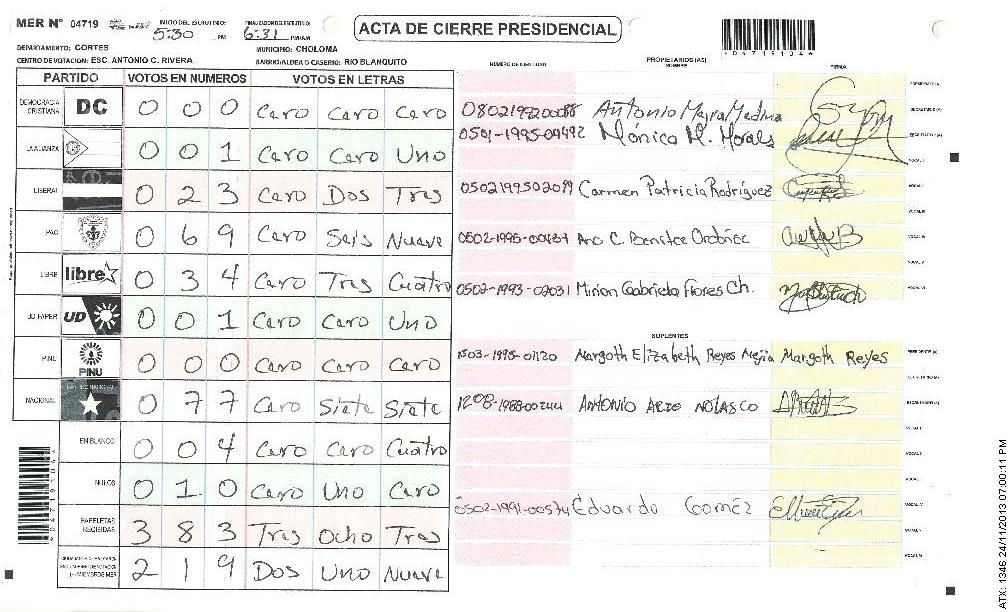 MER Nº 04719 INICIO DEL ESCRUTINIO: 5:30 PM FINALIZACION DEL ESCRUTINIO: 6:31 PM/AM ACTA DE CIERRE PRESIDENCIAL
DEPARTAMENTO: CORTES MUNICIPIO: CHOLOMA
CENTRO DE VOTACION: ESC. ANTONIO C. RIVERA BARRIO/ALDEA O CASERIO: RIO BLANQUITO
PARTIDO VOTOS EN NUMEROS VOTOS EN LETRAS NUMERO DE IDENTIDAD PROPIETARIOS (AS) NOMBRE FIRMA
DEMOCRACIA CRISTIANA DC 0 0 0 Cero Cero Cero
LA ALIANZA 0 0 1 Cero Cero Uno
LIBERAL 0 2 3 Cero Dos Tres
PAC 0 6 9 Cero Seis Nueve
LIBRE libre 0 3 4 Cero Tres Cuatro
UD FAPER UD 0 0 1 Cero Cero Uno
PINU PINU 0 0 0 Cero Cero Cero
NACIONAL 0 7 7 Cero Siete Siete
EN BLANCO 0 0 4 Cero Cero Cuatro
NULOS 0 1 0 Cero Uno Cero
PAPELETAS RECIBIDAS 3 8 3 Tres Ocho Tres
2 1 9 Dos Uno Nueve
Antonio Mejia Medina
0501-1995-04492 Mónica M. Morales
Carmen Patricia Rodríguez
Ana C. Benitez Ordóñez
0502-1993-02031 Mirian Gabriela Flores Ch.
SUPLENTES
1503-1995-01120 Margoth Elizabeth Reyes Mejia Margoth Reyes
1208-1988-00244 ANTONIO ARZE NOLASCO
0502-1991-00574 Eduardo Goméz
ATX: 1346 24/11/2013 07:00:11 PM